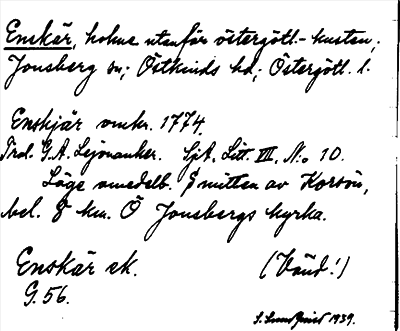 Enskär, holme utanför östergötl.-kusten,
Jonsberg sn; Östkinds hd; Östergötl. l.
Enskjär omkr. 1774.
Trol. G.A. Lejonanker. Sjk. Litt. III, N:o 10.
Läge omedelb. S mitten av Korsön,
bel. 8 km. Ö Jonsbergs kyrka.
Enskär ek. (Vänd!)
G. 56.
S. Lundqvist 1939.